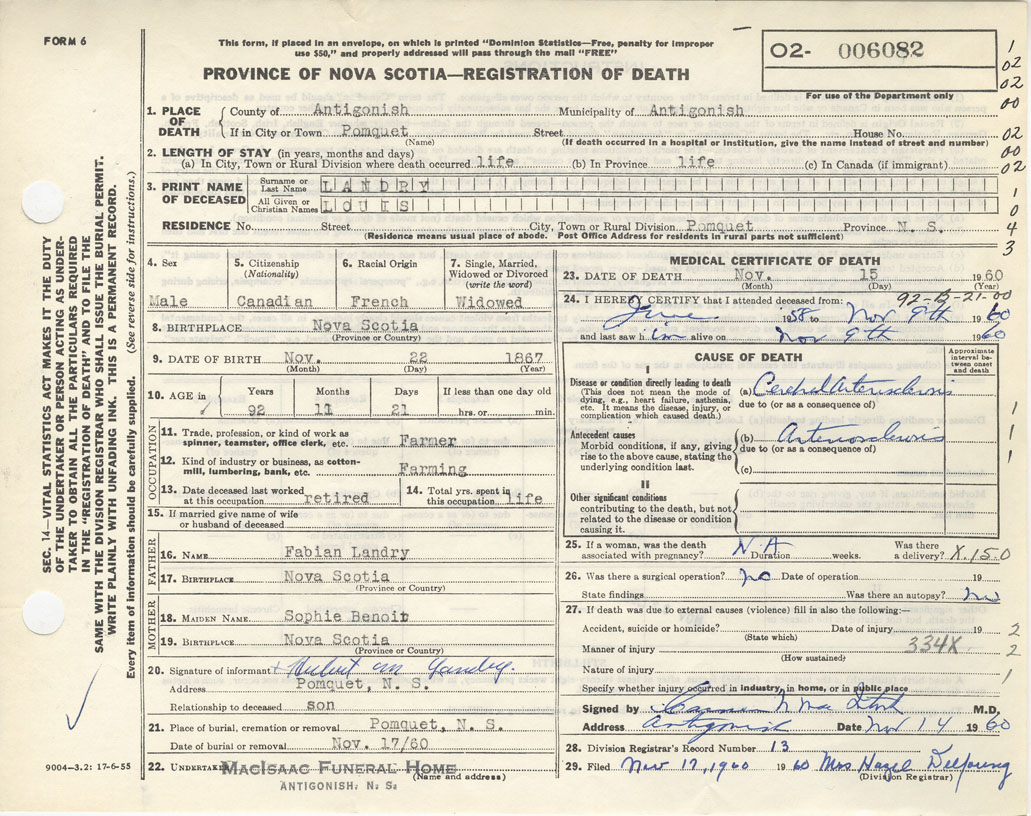 FORM 6
This form, if placed in an envelope, on which is printed "Dominion Statistics—Free, penalty for improper
use $50," and properly addressed will pass through the mail "FREE"
PROVINCE OF NOVA SCOTIA—REGISTRATION OF DEATH
02- 006082
For use of the Department only
1. PLACE OF DEATH County of Antigonish Municipality of Antigonish
If in City or Town Pomquet Street House No.
(Name) (If death occurred in a hospital or institution, give the name instead of street and number)
2. LENGTH OF STAY (in years, months and days)
(a) In City, Town or Rural Division where death occurred life (b) In Province life (c) In Canada (if immigrant)
3. PRINT NAME OF DECEASED Surname or Last Name LANDRY
All Given or Christian Names LOUIS
RESIDENCE No. Street City, Town or Rural Division Pomquet Province N. S.
(Residence means usual place of abode. Post Office Address for residents in rural parts not sufficient)
4. Sex Male
5. Citizenship (Nationality) Canadian
6. Racial Origin French
7. Single, Married, Widowed or Divorced (write the word) Widowed
8. BIRTHPLACE Nova Scotia
(Province or Country)
9. DATE OF BIRTH Nov. 22 1867
(Month) (Day) (Year)
10. AGE in Years Months Days If less than one day old
92 11 21 hrs. or min.
OCCUPATION
11. Trade, profession, or kind of work as spinner, teamster, office clerk, etc. Farmer
12. Kind of industry or business, as cotton-mill, lumbering, bank, etc. Farming
13. Date deceased last worked at this occupation retired
14. Total yrs. spent in this occupation life
15. If married give name of wife or husband of deceased
FATHER
16. NAME Fabian Landry
17. BIRTHPLACE Nova Scotia
(Province or Country)
MOTHER
18. MAIDEN NAME Sophie Benoit
19. BIRTHPLACE Nova Scotia
(Province or Country)
20. Signature of informant Hubert M Landry
Address Pomquet, N. S.
Relationship to deceased son
21. Place of burial, cremation or removal Pomquet, N. S.
Date of burial or removal Nov. 17/60
22. UNDERTAKER MACISAAC FUNERAL HOME
(Name and address)
ANTIGONISH, N. S.
MEDICAL CERTIFICATE OF DEATH
23. DATE OF DEATH Nov. 15 1960
(Month) (Day) (Year)
92-B-21-00
24. I HEREBY CERTIFY that I attended deceased from:
June 1958 to Nov 9th 1960
and last saw him alive on Nov 9th 1960
CAUSE OF DEATH
Approximate interval between onset and death
I
Disease or condition directly leading to death
(This does not mean the mode of dying, e.g., heart failure, asthenia, etc. It means the disease, injury, or complication which caused death.)
(a) Cerebral Arteriosclerosis
due to (or as a consequence of)
Antecedent causes
Morbid conditions, if any, giving rise to the above cause, stating the underlying condition last.
(b) Arteriosclerosis
due to (or as a consequence of)
(c)
II
Other significant conditions
contributing to the death, but not related to the disease or condition causing it.
25. If a woman, was the death associated with pregnancy? N A Duration weeks. Was there a delivery? X.15-0
26. Was there a surgical operation? no Date of operation 19
State findings Was there an autopsy? no
27. If death was due to external causes (violence) fill in also the following:—
Accident, suicide or homicide? Date of injury 19
(State which)
Manner of injury 334X
(How sustained)
Nature of injury
Specify whether injury occurred in industry, in home, or in public place
Signed by M.D.
Address Antigonish Date Nov 14 1960
28. Division Registrar's Record Number 13
29. Filed Nov 17, 1960 1960 Mrs Hazel DeYoung
(Division Registrar)
SEC. 14—VITAL STATISTICS ACT MAKES IT THE DUTY
OF THE UNDERTAKER OR PERSON ACTING AS UNDER-
TAKER TO OBTAIN ALL THE PARTICULARS REQUIRED
IN THE "REGISTRATION OF DEATH" AND TO FILE THE
SAME WITH THE DIVISION REGISTRAR WHO SHALL ISSUE THE BURIAL PERMIT.
WRITE PLANLY WITH UNFADING INK. THIS IS A PERMANENT RECORD.
Every item of information should be carefully supplied. (See reverse side for instructions.)
9004—3.2: 17-6-55
1
02
02
00
02
00
02
1
0
4
3
1
1
1
2
2
1